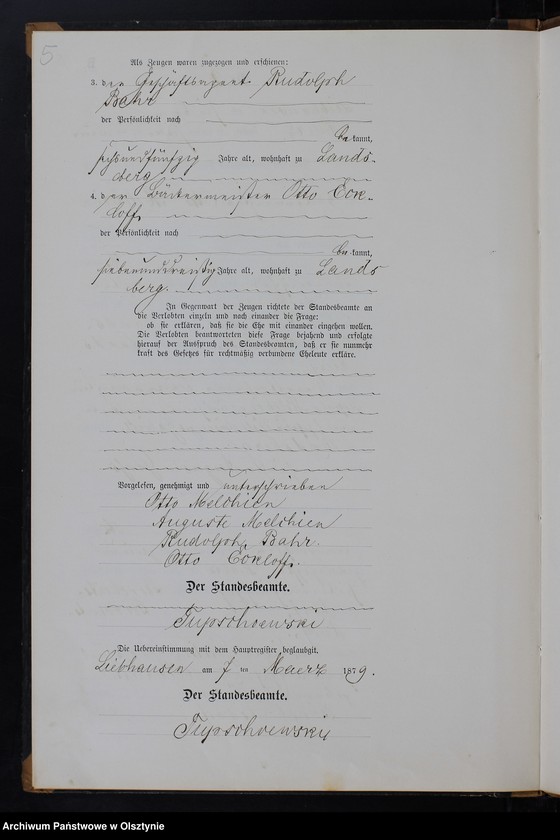 5
Als Zeugen waren zugezogen und erschienen:
3. der Geschäftsagent Rudolph
Bahr
der Persönlichkeit nach
be kannt,
sechsundfünfzig Jahre alt, wohnhaft zu Lands-
berg
4. der Bäckermeister Otto Eck-
loff
der Persönlichkeit nach
be kannt,
siebenunddreißig Jahre alt, wohnhaft zu Lands
berg.
In Gegenwart der Zeugen richtete der Standesbeamte an
die Verlobten einzeln und nach einander die Frage:
ob sie erklären, daß sie die Ehe mit einander eingehen wollen.
Die Verlobten beantworteten diese Frage bejahend und erfolgte
hierauf der Ausspruch des Standesbeamten, daß er sie nunmehr
kraft des Gesetzes für rechtmäßig verbundene Eheleute erkläre.
Vorgelesen, genehmigt und unterschrieben
Otto Melchien
Auguste Melchien
Rudolph Bahr.
Otto Eckloff.
Der Standesbeamte.
Die Uebereinstimmung mit dem Hauptregister beglaubigt.
am ten Maerz 1879.
Der Standesbeamte.
Archiwum Państwowe w Olsztynie